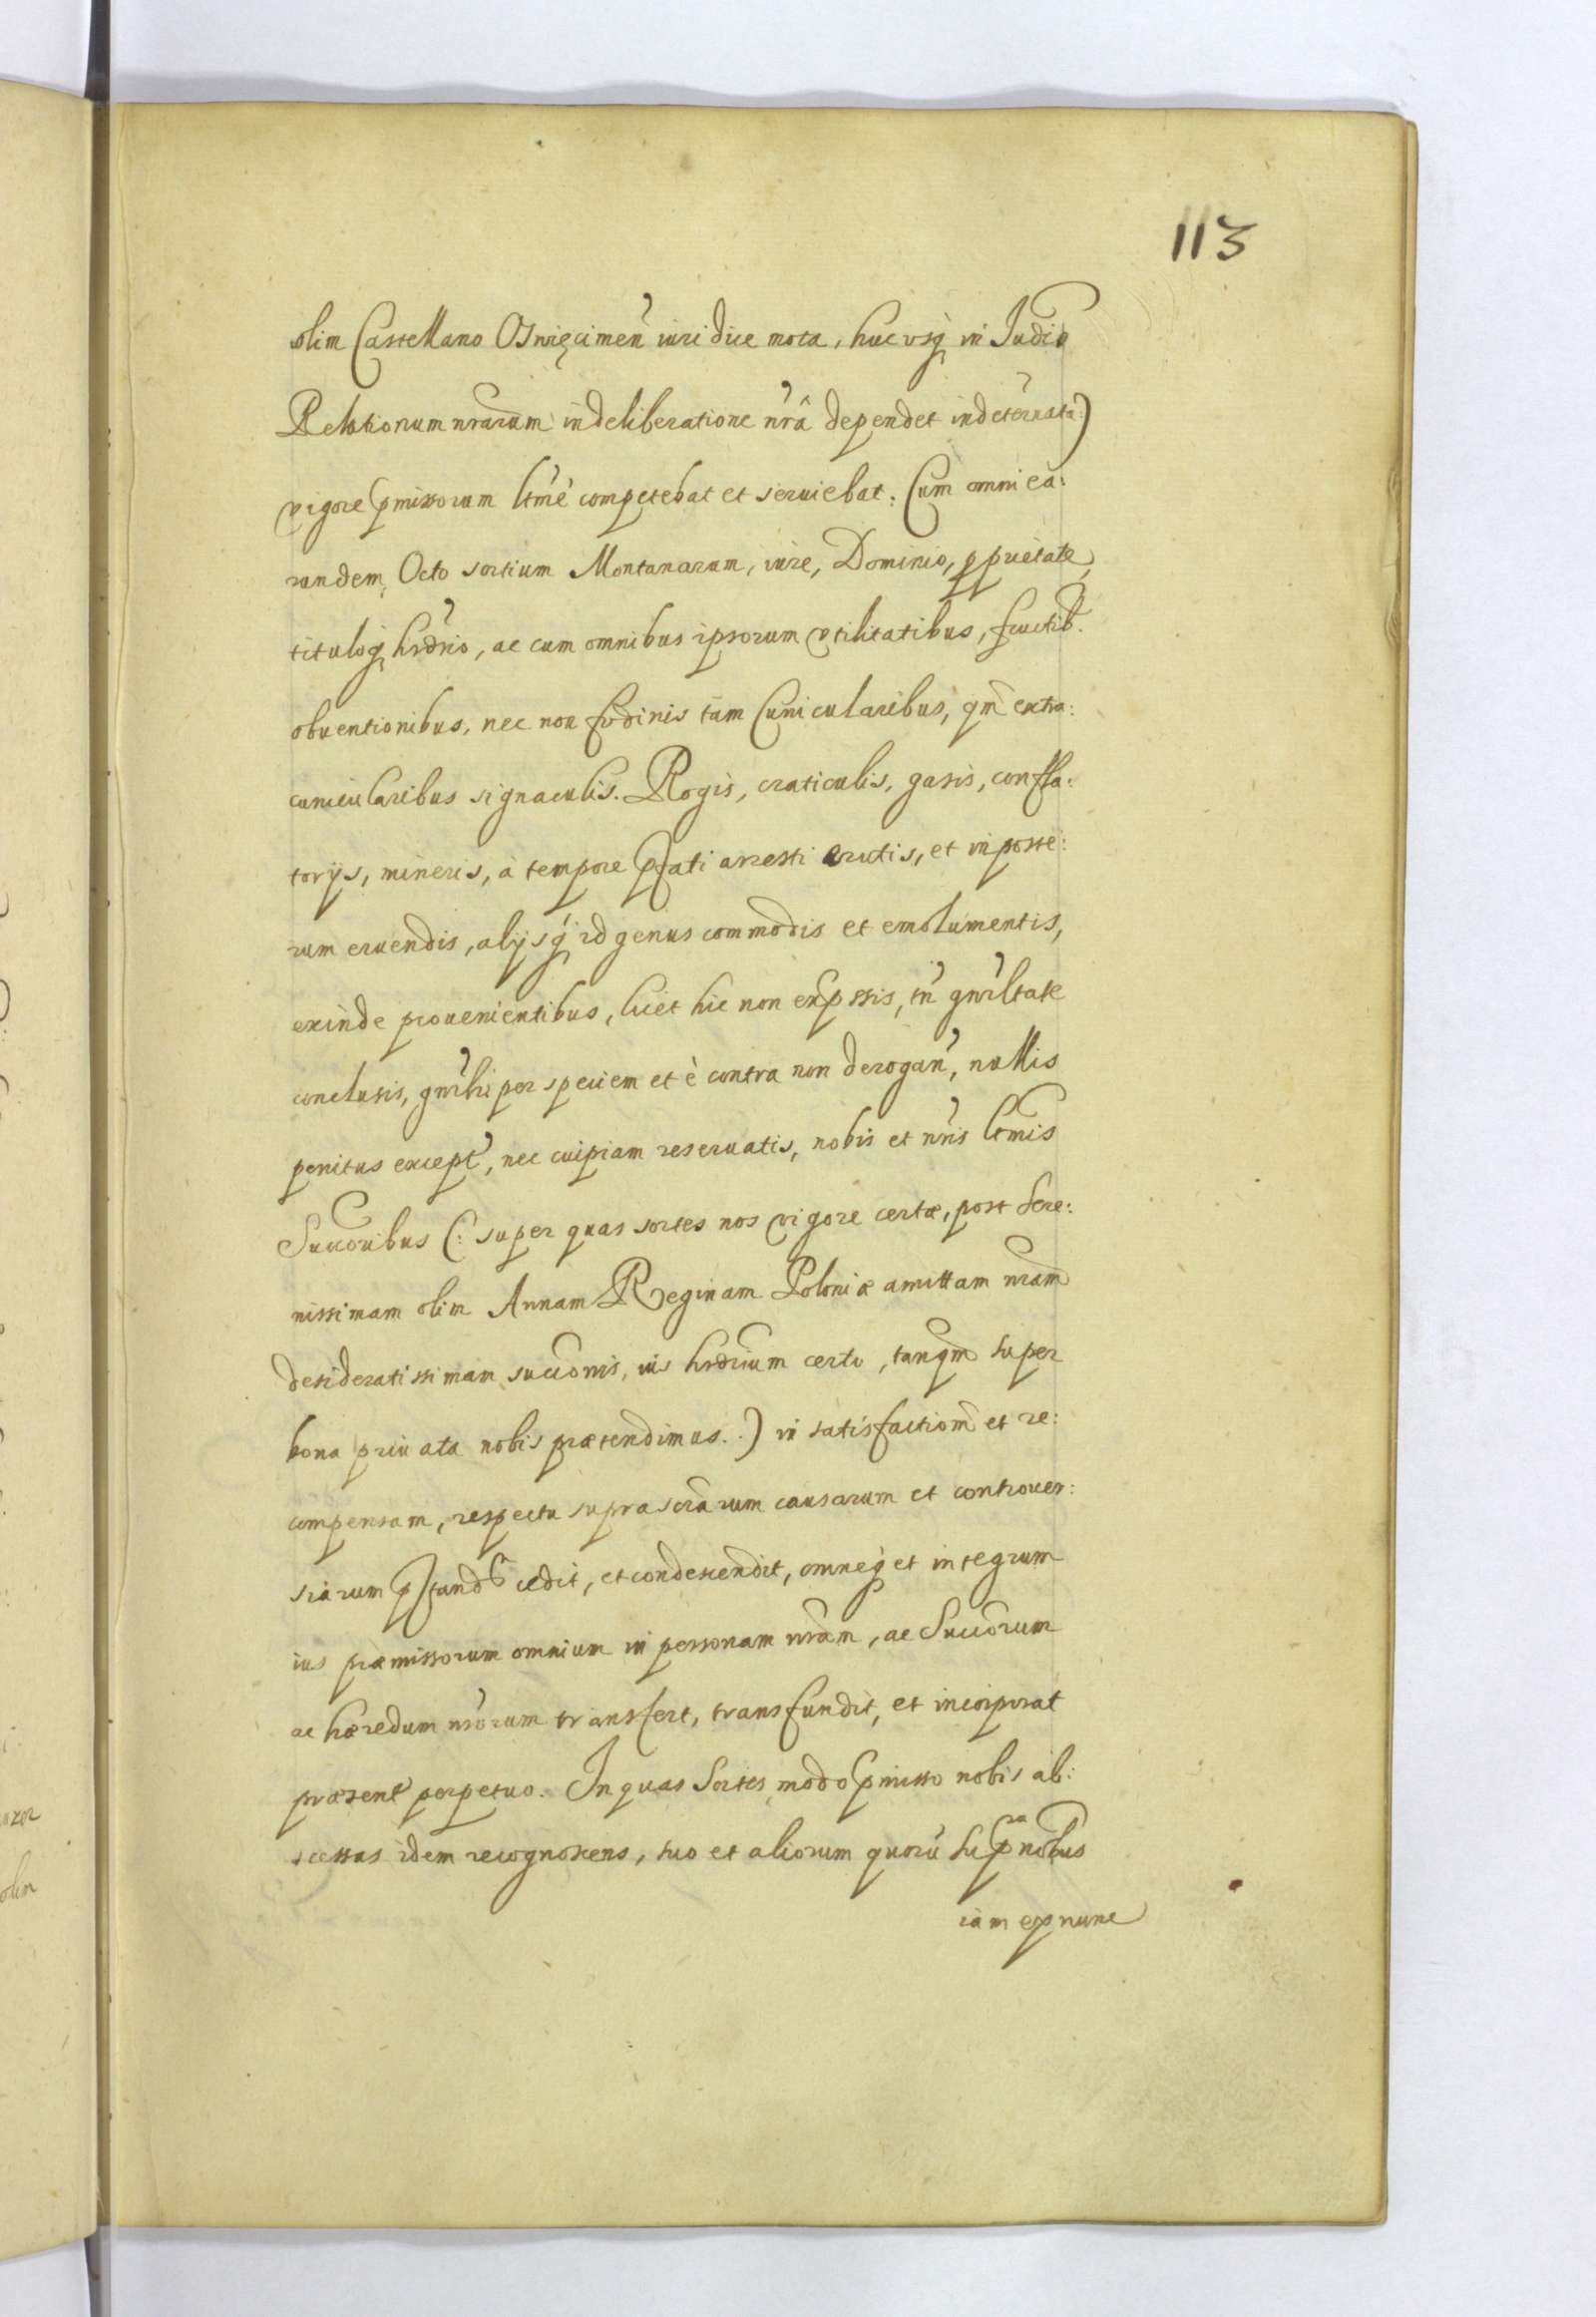 113
olim Castellano Oswięcimen̄ iuridice mota, huc vsq̃ in Iudicio
Relationum nrarum in deliberatione nrâ dependet indeterāta:)
vigore p̄missorum ltmè competebat et seruiebat. Cum omni ea:
rundem, Octo sortium Montanarum, iure, Dominio, pprietate,
tituloq̃ hrdrio, ac cum omnibus ipsorum vtilitatibus, fructib.
obuentionibus, nec non fodinis tam Cunicularibus, qm̄ extra:
cunicularibus signaculis. Rogis, craticulis, gasis, confla:
torÿs, mineris, à tempore p̄fati arresti erutis, et in poste:
rum eruendis, alÿsq̃ id genus commodis et emolumentis,
exinde prouenientibus, licet hic non exp̄ssis, tn̄ gnr̄ltate
conclusis, gnr̄li per speciem et è contra non derogan̄, nullis
penitus except̄, nec cuipiam reseruatis, nobis et nr̄is ltmis
Succoribus (: super quas sortes nos vigore certæ, post Sere:
nissimam olim Annam Reginam Poloniæ amittam nram
desideratissimam succonis, ius hrdrium certo, tanqm̄ super
bona priuata nobis prætendimus.:) in satisfactiom̄ et re:
compensam, respectu suprascrārum causarum et controuer:
siarum p̄standā cedit, et condescendit, omneq̃ et integrum
ius præmissorum omnium in personam nrām, ac Succorum
ac hæredum nrorum transfert, transfundit, et incorporat
præsent̄ perpetuo. In quas Sortes, modo p̄misso nobis ab:
scessas idem recognoscens, suo et aliorum quorū sup̄ra nobus
iam ex nunc